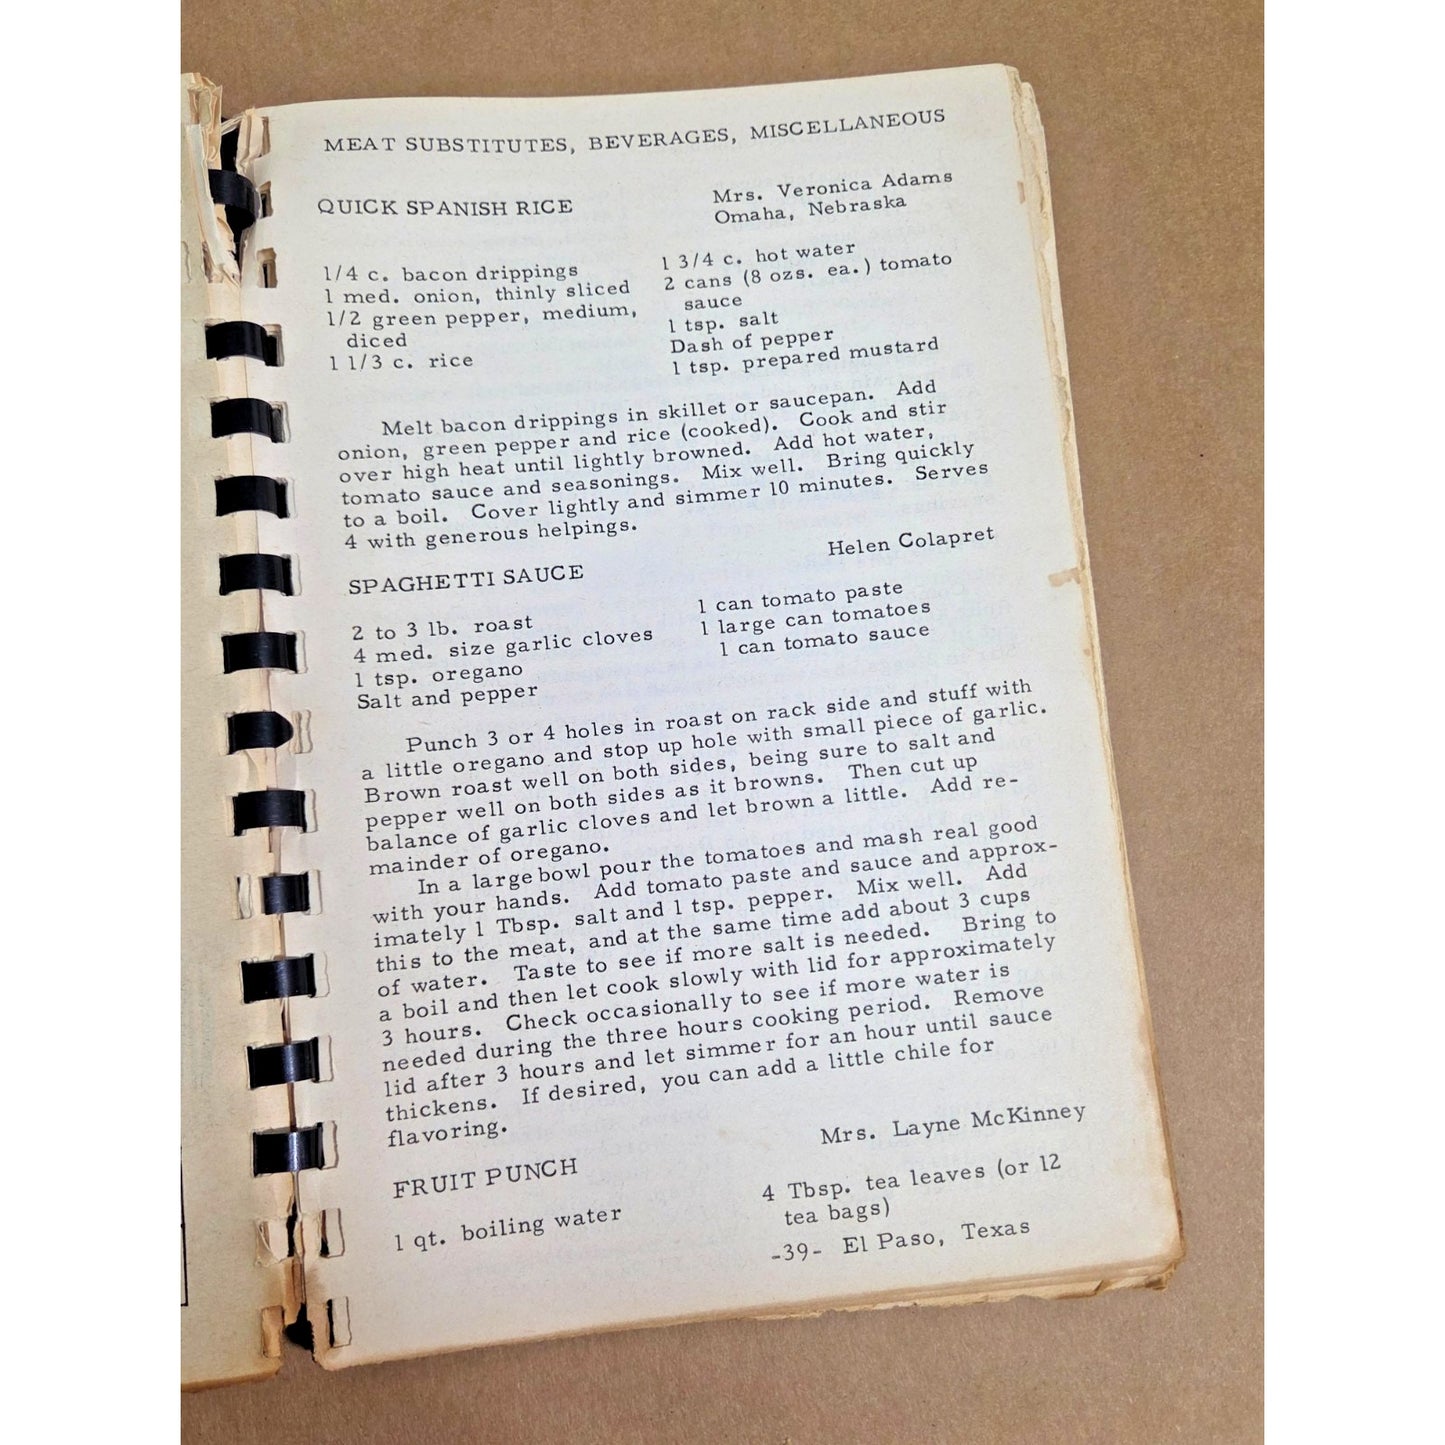 MEAT SUBSTITUTES, BEVERAGES, MISCELLANEOUS
QUICK SPANISH RICE
Mrs. Veronica Adams
Omaha, Nebraska
1/4 c. bacon drippings
1 med. onion, thinly sliced
1/2 green pepper, medium,
diced
1 1/3 c. rice
1 3/4 c. hot water
2 cans (8 ozs. ea.) tomato
sauce
1 tsp. salt
Dash of pepper
1 tsp. prepared mustard
Melt bacon drippings in skillet or saucepan. Add
onion, green pepper and rice (cooked). Cook and stir
over high heat until lightly browned. Add hot water,
tomato sauce and seasonings. Mix well. Bring quickly
to a boil. Cover lightly and simmer 10 minutes. Serves
4 with generous helpings.
SPAGHETTI SAUCE
Helen Colapret
2 to 3 lb. roast
4 med. size garlic cloves
1 tsp. oregano
Salt and pepper
1 can tomato paste
1 large can tomatoes
1 can tomato sauce
Punch 3 or 4 holes in roast on rack side and stuff with
a little oregano and stop up hole with small piece of garlic.
Brown roast well on both sides, being sure to salt and
pepper well on both sides as it browns. Then cut up
balance of garlic cloves and let brown a little. Add re-
mainder of oregano.
In a large bowl pour the tomatoes and mash real good
with your hands. Add tomato paste and sauce and approx-
imately 1 Tbsp. salt and 1 tsp. pepper. Mix well. Add
this to the meat, and at the same time add about 3 cups
of water. Taste to see if more salt is needed. Bring to
a boil and then let cook slowly with lid for approximately
3 hours. Check occasionally to see if more water is
needed during the three hours cooking period. Remove
lid after 3 hours and let simmer for an hour until sauce
thickens. If desired, you can add a little chile for
flavoring.
FRUIT PUNCH
Mrs. Layne McKinney
1 qt. boiling water
4 Tbsp. tea leaves (or 12
tea bags)
-39- El Paso, Texas